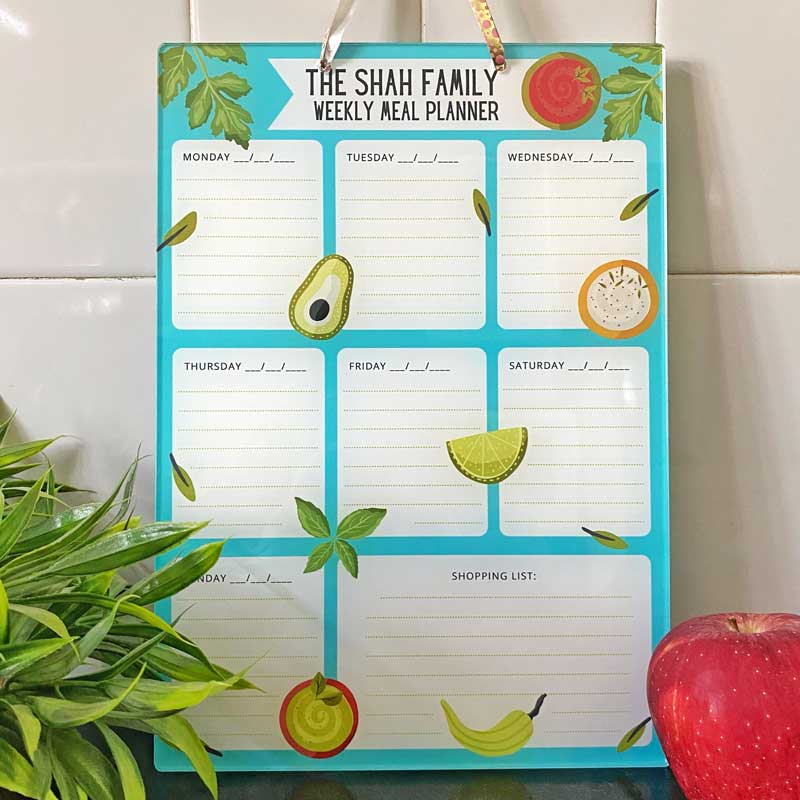 THE SHAH FAMILY
WEEKLY MEAL PLANNER
MONDAY ___/___/____
TUESDAY ___/___/____
WEDNESDAY___/___/____
THURSDAY ___/___/____
FRIDAY ___/___/____
SATURDAY ___/___/____
NDAY ___/___/____
SHOPPING LIST: